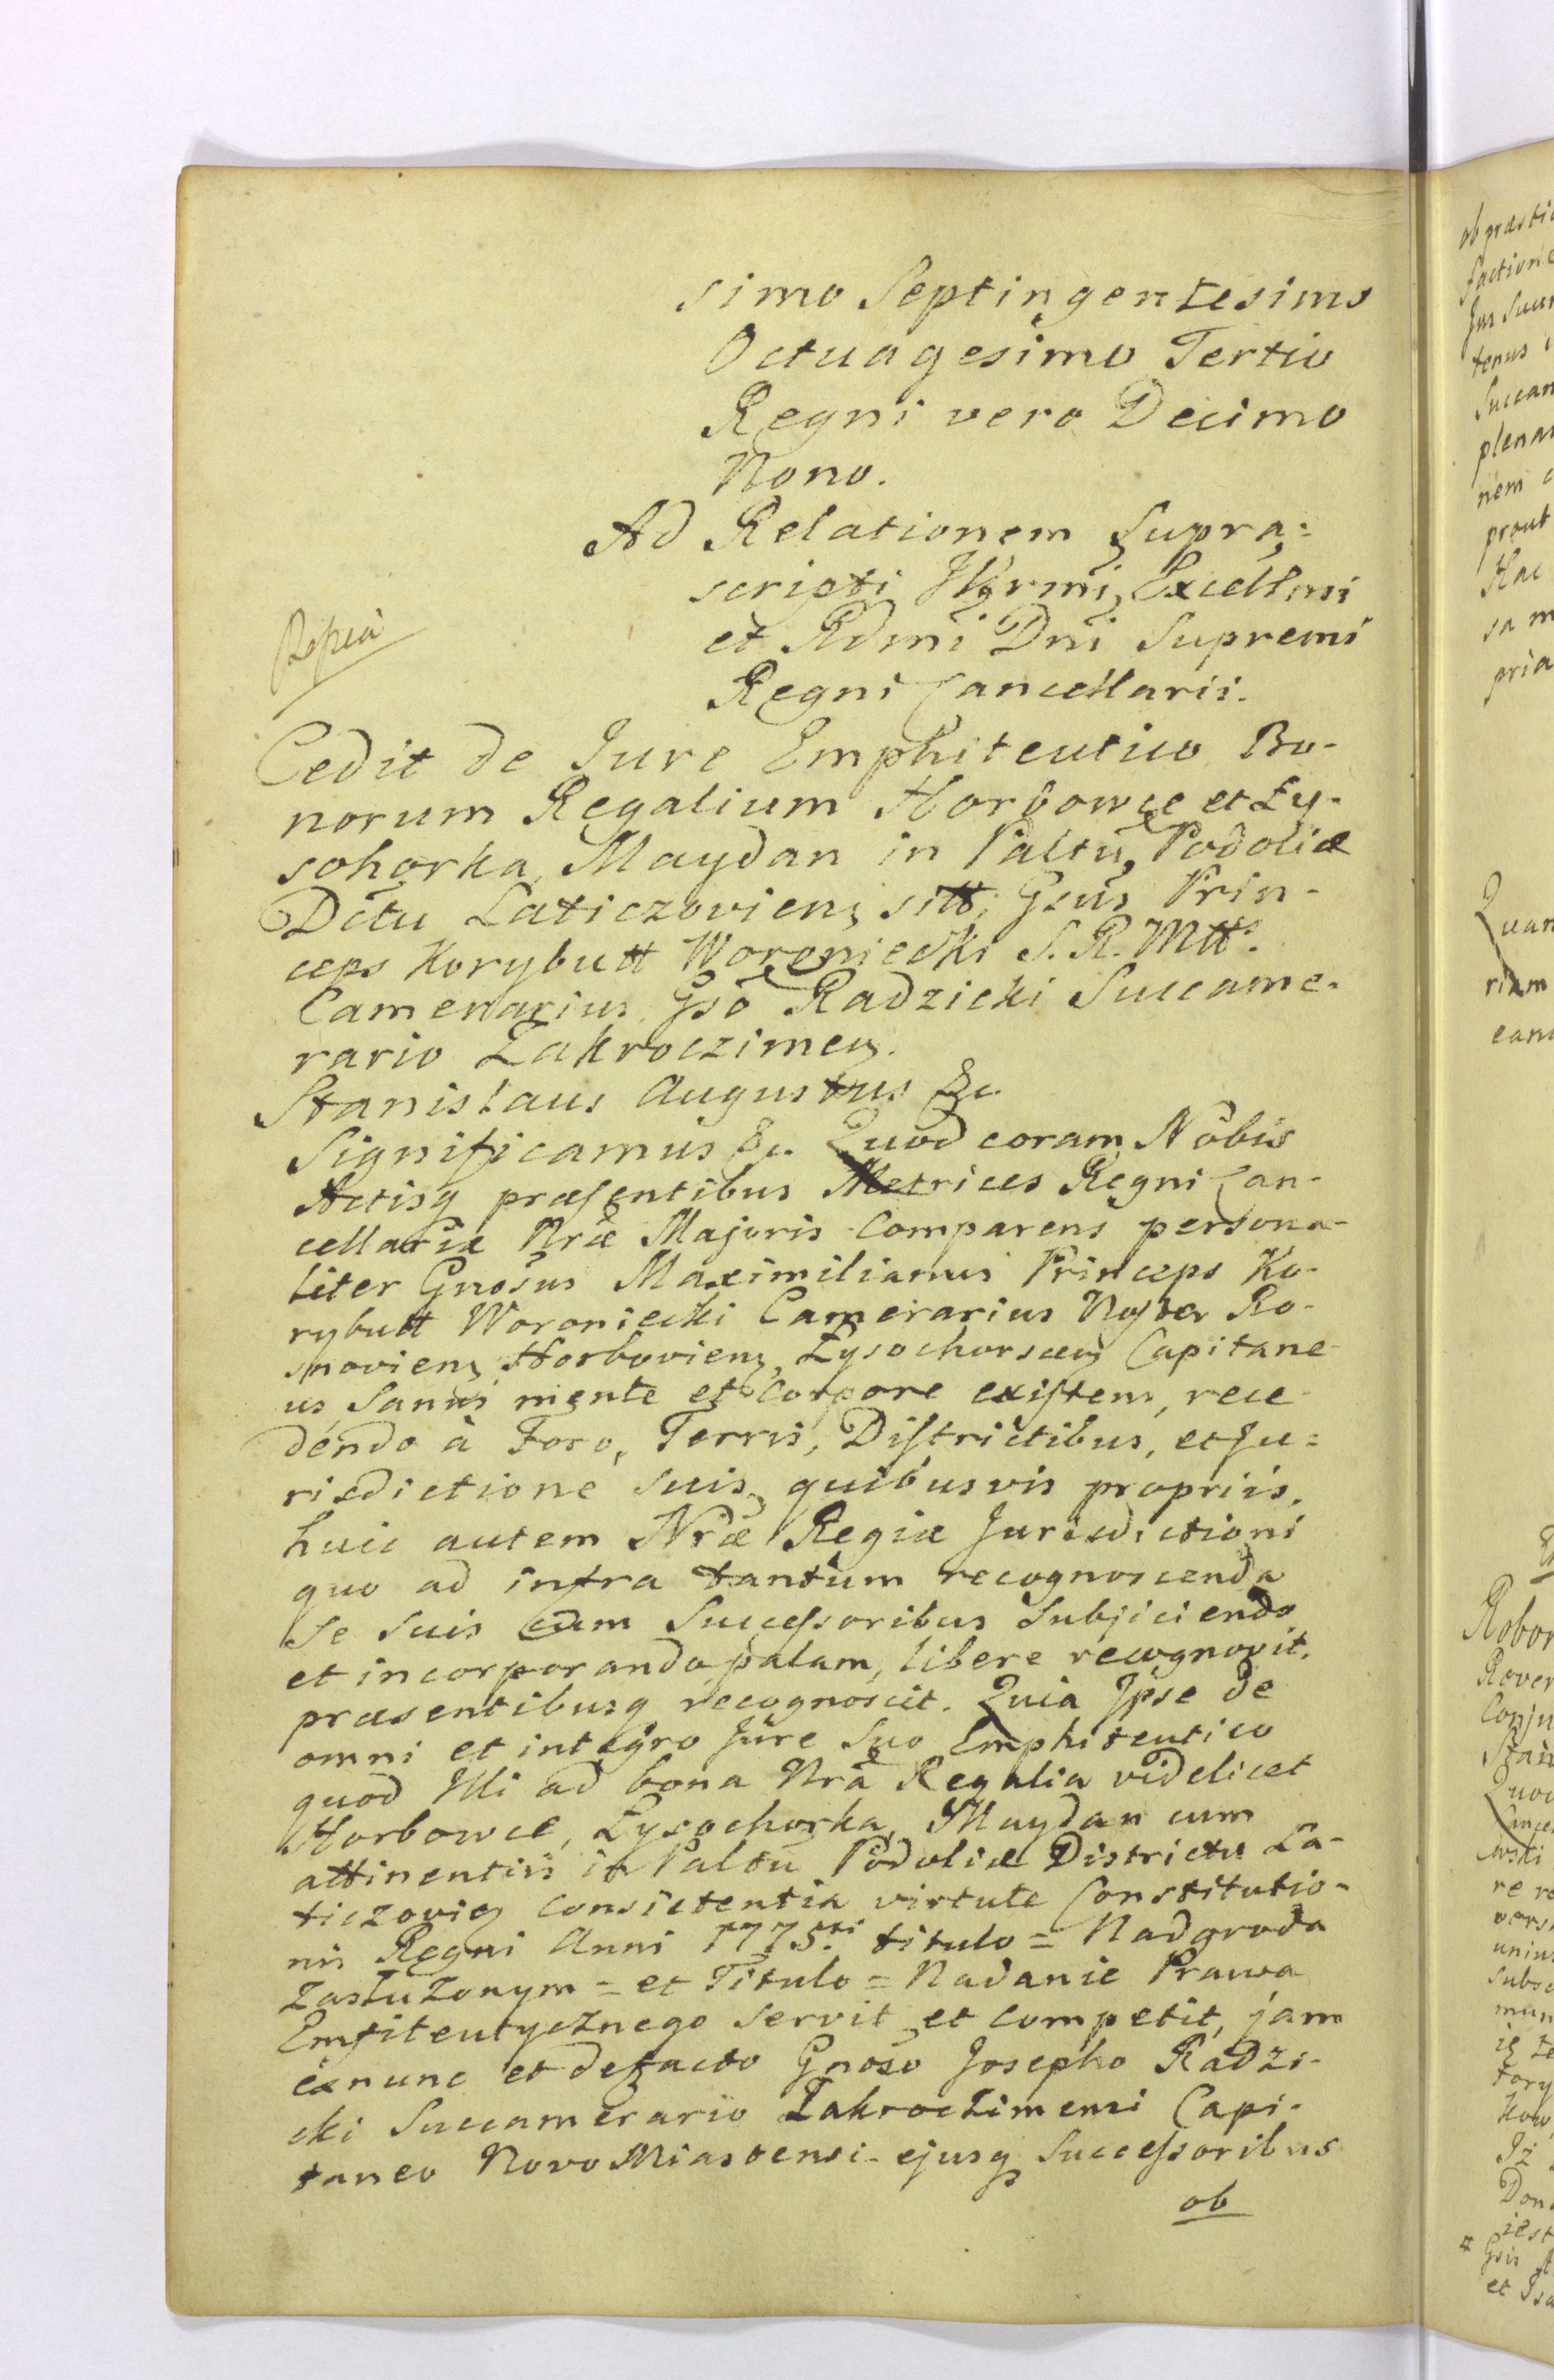 simo Septingentesimo
Octuagesimo Tertio
Regni vero Decimo
Nono.
Ad Relationem Supra=
scripti Illrmi, Excellmi
et Rdmi Dni Supremi
Regni Cancellarii.
Cedit de Jure Emphiteutico Bo-
norum Regalium Horbowce et Ły-
sohorka, Maydan in Paltu, Podoliæ
Dctu Laticzovien, sitt, Gsus Prin-
ceps Korybutt Woroniecki S. R. Mtt.
Camerarius, Gso Radzicki Succame-
rario Zakroczimen.
Stanislaus Augustus &c.
Significamus &c. Quod coram Nobis
Actisq præsentibus Metrices Regni Can-
cellariæ Nræ Majoris Comparens persona-
liter Gnosus Maximilianus Princeps Ko-
rybutt Woroniecki Camerarius Noster Ro-
snovien, Horbovien, Łysochorscen, Capitane-
us, Sanus mente et Corpore existens, rece-
dendo à Foro, Terris, Districtibus, et Ju=
risdictione suis, quibusvis propriis,
huic autem Nræ Regiæ Jurisdictioni
quo ad infra tantum recognoscenda
se suis cum Successoribus Subjiciendo
et incorporando palam, libere recognovit,
præsentibusq recognoscit. Quia Ipse de
omni et integro Jure Suo Emphiteutico
quod Illi ad bona Nra Regalia videlicet
Horbowce, Łysochorka, Maydan cum
attinentiis in Paltu Podoliæ Districtu La-
ticzovien consistentia virtute Constitutio-
nis Regni Anni 1775.ti titulo = Nadgroda
Zasłużonym = et Titulo = Nadanie Prawa
Emfiteutycznego servit et competit, jam
exnunc et defacto Gnoso Josepho Radzi-
cki Succamerario Zakroczimensi Capi-
taneo Novo Miastensi ejusq Successoribus
ob